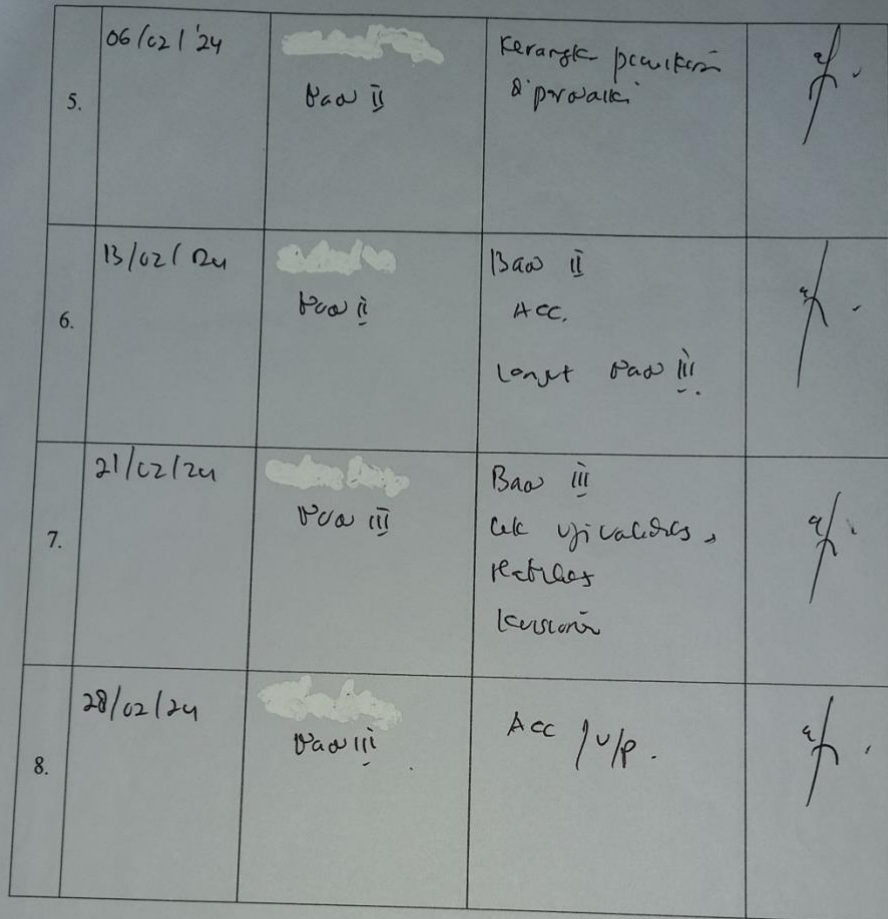 5.
06/02/'24
Bab II
Kerangka pemikiran
diperbaiki
6.
13/02/24
Bab II
Bab II
Acc.
Lanjut Bab III.
7.
21/02/24
Bab III
Bab III
Cek uji validitas,
reabilitas
kuisioner
8.
28/02/24
Bab III
Acc / U/P.